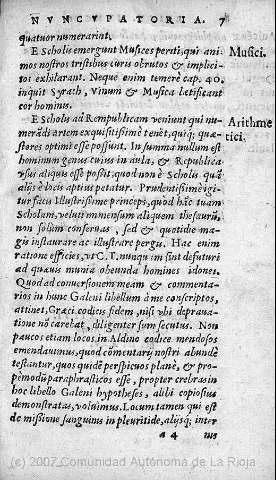 NVNCVPATORIA. 7
quatuor numerarint.
E Scholis emergunt Musices periti, qui ani-
Musici.
mos nostros tristibus curis obrutos & implici-
tos exhilarant. Neque enim temerè cap. 40.
inquit Syrach, Vinum & Musica lætificant
cor hominus.
E Scholis ad Rempublicam veniunt qui nu-
Arithme
tici.
merãdi artem exquisitißimè tenẽt, quiq; quæ-
stores optimi esse possunt. In summa nullum est
hominum genus cuius in aula, & Republica
vsus aliquis esse poßit, quod non è Scholis quã
alijs è locis aptius petatur. Prudentißimè igi-
tur facis Illustrißime princeps, quod hãc tuam
Scholam, veluti immensum aliquem thesaurũ,
non solùm conseruas, sed & quotidie ma-
gis instaurare ac illustrare pergis. Hac enim
ratione efficies, vt C. T. nunquã sint defuturi
ad quæuis munia obeunda homines idonei.
Quod ad conuersionem meam & commenta-
rios in hunc Galeni libellum à me conscriptos,
attinet, Græci codicis fidem, nisi vbi deprauа-
tione nõ carebat, diligenter sum secutus. Non
paucos etiam locos in Aldino codice mendosos
emendauimus, quod cõmentarij nostri abundè
testantur, quos quidẽ perspicuos planè, & pro-
pemodũ paraphrasticos esse, propter crebras in
hoc libello Galeni hypotheses, alibi copiosius
demonstratas, voluimus. Locum tamen qui est
de mißione sanguinis in pleuritide, aliýsq; inter-
a 4 nis
(c) 2007 Comunidad Autónoma de La Rioja